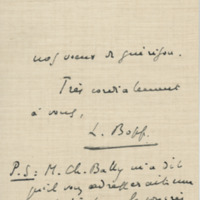 nos vœux de guérison.
Très cordialement
à vous,
L. Bopp.
P.S: M. Ch. Bally m'a dit
qu'il vous adresserait une